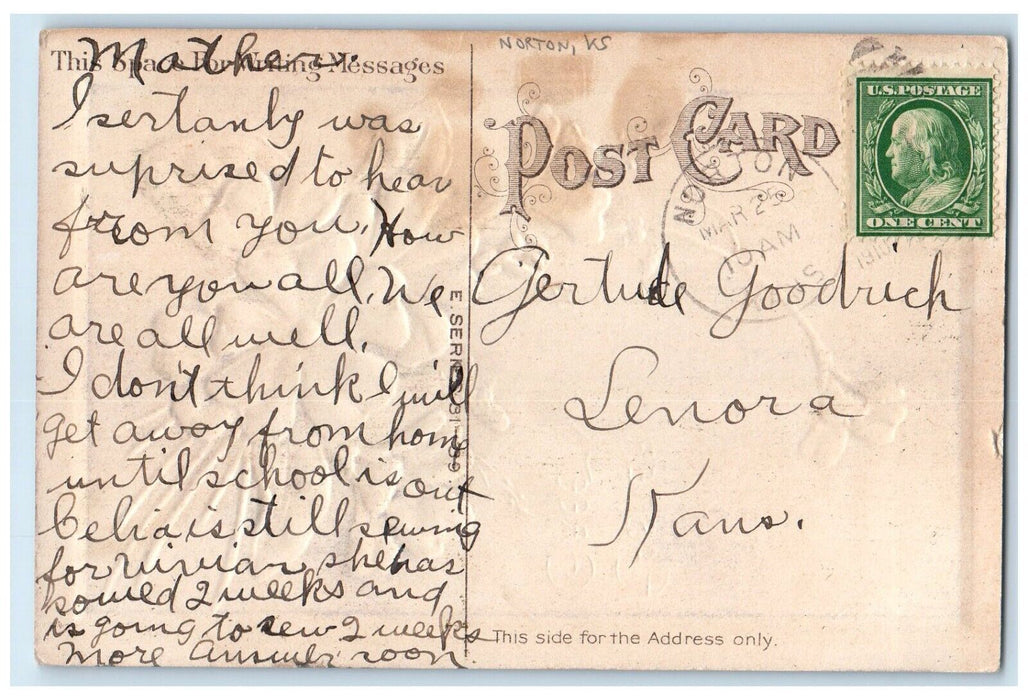 NORTON, KS
This Space For Writing Messages
Mather.
I sertanly was
suprised to hear
from you, How
are you all, We
are all well,
I don't think I will
get away from home
until school is out
Celia is still sewing
for Vivian she has
sowed 2 weeks and
is going to sew 2 weeks
more answer soon.
E. SERIES
POST CARD
U.S. POSTAGE
ONE CENT
NORTON
MAR 25
10 AM
Gertude Goodrich
Lenora
Kans.
This side for the Address only.